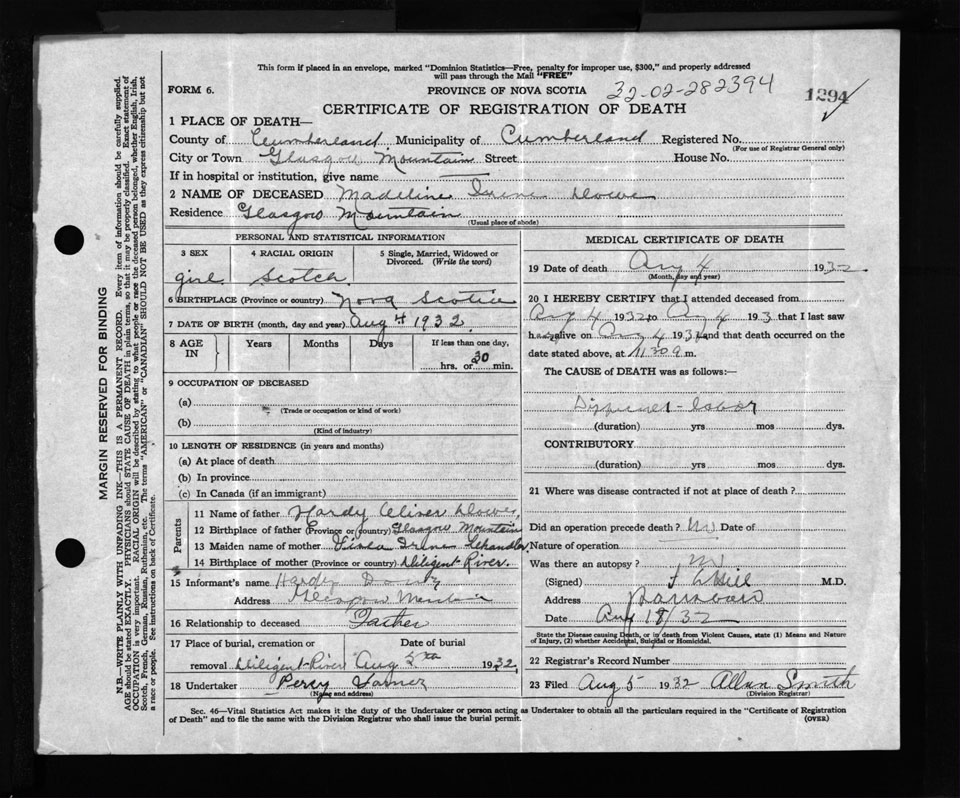 This form if placed in an envelope, marked "Dominion Statistics—Free, penalty for improper use, $300," and properly addressed
will pass through the Mail "FREE"
FORM 6.
PROVINCE OF NOVA SCOTIA
32-02-282394
1294
CERTIFICATE OF REGISTRATION OF DEATH
1 PLACE OF DEATH—
County of Cumberland Municipality of Cumberland Registered No.
(For use of Registrar General only)
City or Town Glasgow Mountain Street House No.
If in hospital or institution, give name
2 NAME OF DECEASED Madeline Irene
Residence Glasgow Mountain
(Usual place of abode)
PERSONAL AND STATISTICAL INFORMATION
3 SEX
4 RACIAL ORIGIN
5 Single, Married, Widowed or
Divorced. (Write the word)
girl Scotch
6 BIRTHPLACE (Province or country) Nova Scotia
7 DATE OF BIRTH (month, day and year) Aug 4 1932.
8 AGE
IN
Years Months Days If less than one day,
hrs. or 30 min.
9 OCCUPATION OF DECEASED
(a)
(Trade or occupation or kind of work)
(b)
(Kind of industry)
10 LENGTH OF RESIDENCE (in years and months)
(a) At place of death
(b) In province
(c) In Canada (if an immigrant)
Parents
11 Name of father Hardy Oliver
12 Birthplace of father (Province or country) Glasgow Mountain
13 Maiden name of mother Viola Irene Chandler
14 Birthplace of mother (Province or country) Diligent River.
15 Informant's name Hardy
Address Glasgow Mountain
16 Relationship to deceased Father
17 Place of burial, cremation or Date of burial
removal Diligent River Aug 5th 1932
18 Undertaker Percy
(Name and address)
MEDICAL CERTIFICATE OF DEATH
19 Date of death Aug 4 1932
(Month, day and year)
20 I HEREBY CERTIFY that I attended deceased from
Aug 4 1932 to Aug 4 193 that I last saw
h alive on Aug 4 1932 and that death occurred on
date stated above, at 11.30 a m.
The CAUSE of DEATH was as follows:—
labor
(duration) yrs mos dys.
CONTRIBUTORY
(duration) yrs mos dys.
21 Where was disease contracted if not at place of death?
Did an operation precede death? No Date of
Nature of operation
Was there an autopsy? No
(Signed) Hill M.D.
Address Parrsboro
Date Aug 18/32
State the Disease causing Death, or in death from Violent Causes, state (1) Means and Nature
of Injury, (2) whether Accidental, Suicidal or Homicidal.
22 Registrar's Record Number
23 Filed Aug 5 1932 Allan Smith
(Division Registrar)
Sec. 46—Vital Statistics Act makes it the duty of the Undertaker or person acting as Undertaker to obtain all the particulars required in the "Certificate of Registration
of Death" and to file the same with the Division Registrar who shall issue the burial permit.
(OVER)
MARGIN RESERVED FOR BINDING
N.B.—WRITE PLAINLY WITH UNFADING INK—THIS IS A PERMANENT RECORD. Every item of information should be carefully supplied.
AGE should be stated EXACTLY. PHYSICIANS should STATE CAUSE OF DEATH in plain terms, so that it may be properly classified. Exact statement of
OCCUPATION is very important. RACIAL ORIGIN will be described by stating to what people or race the deceased person belonged, whether English, Irish,
Scotch, French, German, Russian, Ruthenian, etc. The terms "AMERICAN" or "CANADIAN" SHOULD NOT BE USED as they express citizenship but not
a race or people. See instructions on back of Certificate.